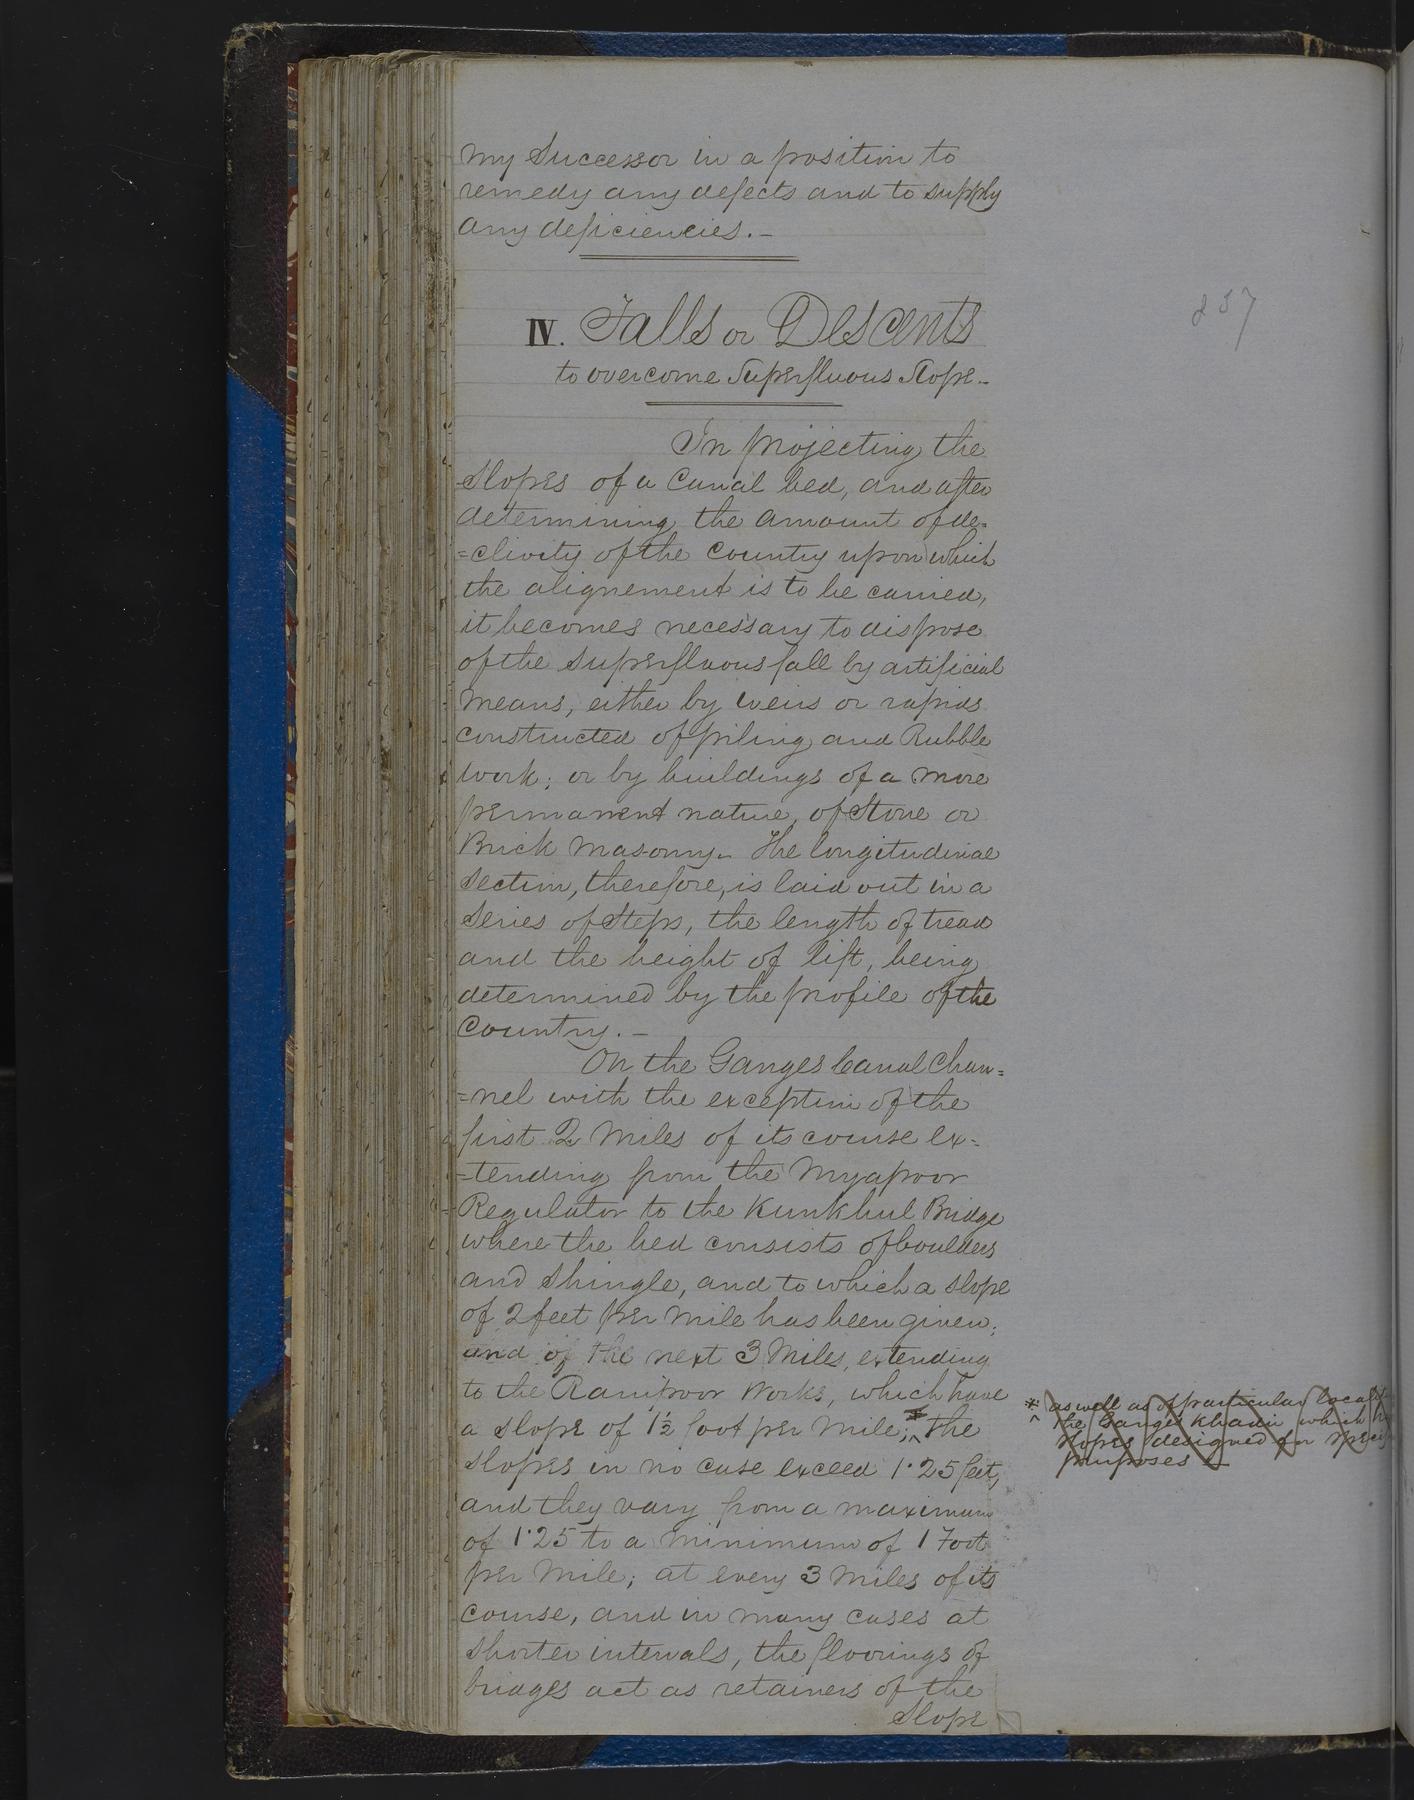 my Successor in a position to
remedy any defects and to supply
any deficiencies.—
IV. Falls or Descents
to overcome Superfluous Slope.—
857
In projecting the
Slopes of a Canal bed, and after
determining the amount of de-
=clivity of the Country upon which
the alignement is to be carried,
it becomes necessary to dispose
of the superfluous fall by artificial
means, either by weirs or rapids
constructed of piling and Rubble
work; or by buildings of a more
permanent nature, of Stone or
Brick masonry.— The longitudinal
Section, therefore, is laid out in a
Series of Steps, the length of tread
and the height of lift, being
determined by the profile of the
Country.—
On the Ganges Canal Chan=
=nel with the exception of the
first 2 Miles of its course ex=
=tending from the Myapoor
Regulator to the Kunkhul Bridge
where the bed consists of boulders
and Shingle, and to which a slope
of 2 feet per Mile has been given;
and of the next 3 Miles, extending
to the Ranipoor Works, which have
a slope of 1½ foot per Mile; * the
* as well as of particular
the Ganges Khadir which
slopes designed for
purposes
Slopes in no case exceed 1·25 feet,
and they vary from a maximum
of 1·25 to a minimum of 1 Foot
per Mile; at every 3 Miles of its
course, and in many cases at
shorter intervals, the floorings of
bridges act as retainers of the
Slope